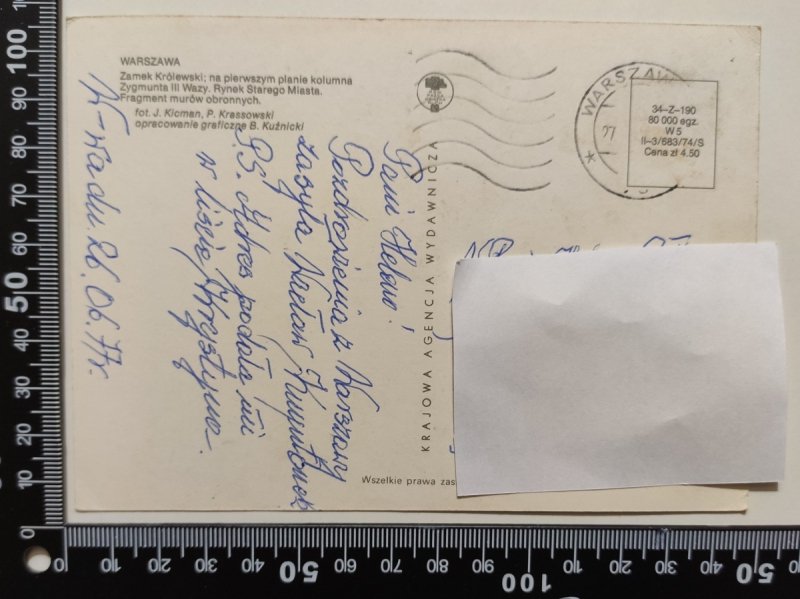 WARSZAWA
Zamek Królewski; na pierwszym planie kolumna
Zygmunta III Wazy. Rynek Starego Miasta.
Fragment murów obronnych.
fot. J. Kicman, P. Krassowski
opracowanie graficzne B. Kuźnicki
W-wa dn. 26.06.77r.
Pani Heleno!
Pozdrowienia z Warszawy
zasyła Wacław
P.S. Adres podała mi
w liście Krystyna.
KRAJOWA AGENCJA WYDAWNICZA
WARSZAWA
34-Z-190
80 000 egz.
W 5
II-3/583/74/S
Cena zł 4.50
Wszelkie prawa zas
0 10 20 30 40 50 60 70 80 90 100
0 10 20 30 40 50 60 70 80 90 100 10 20 30 40 50